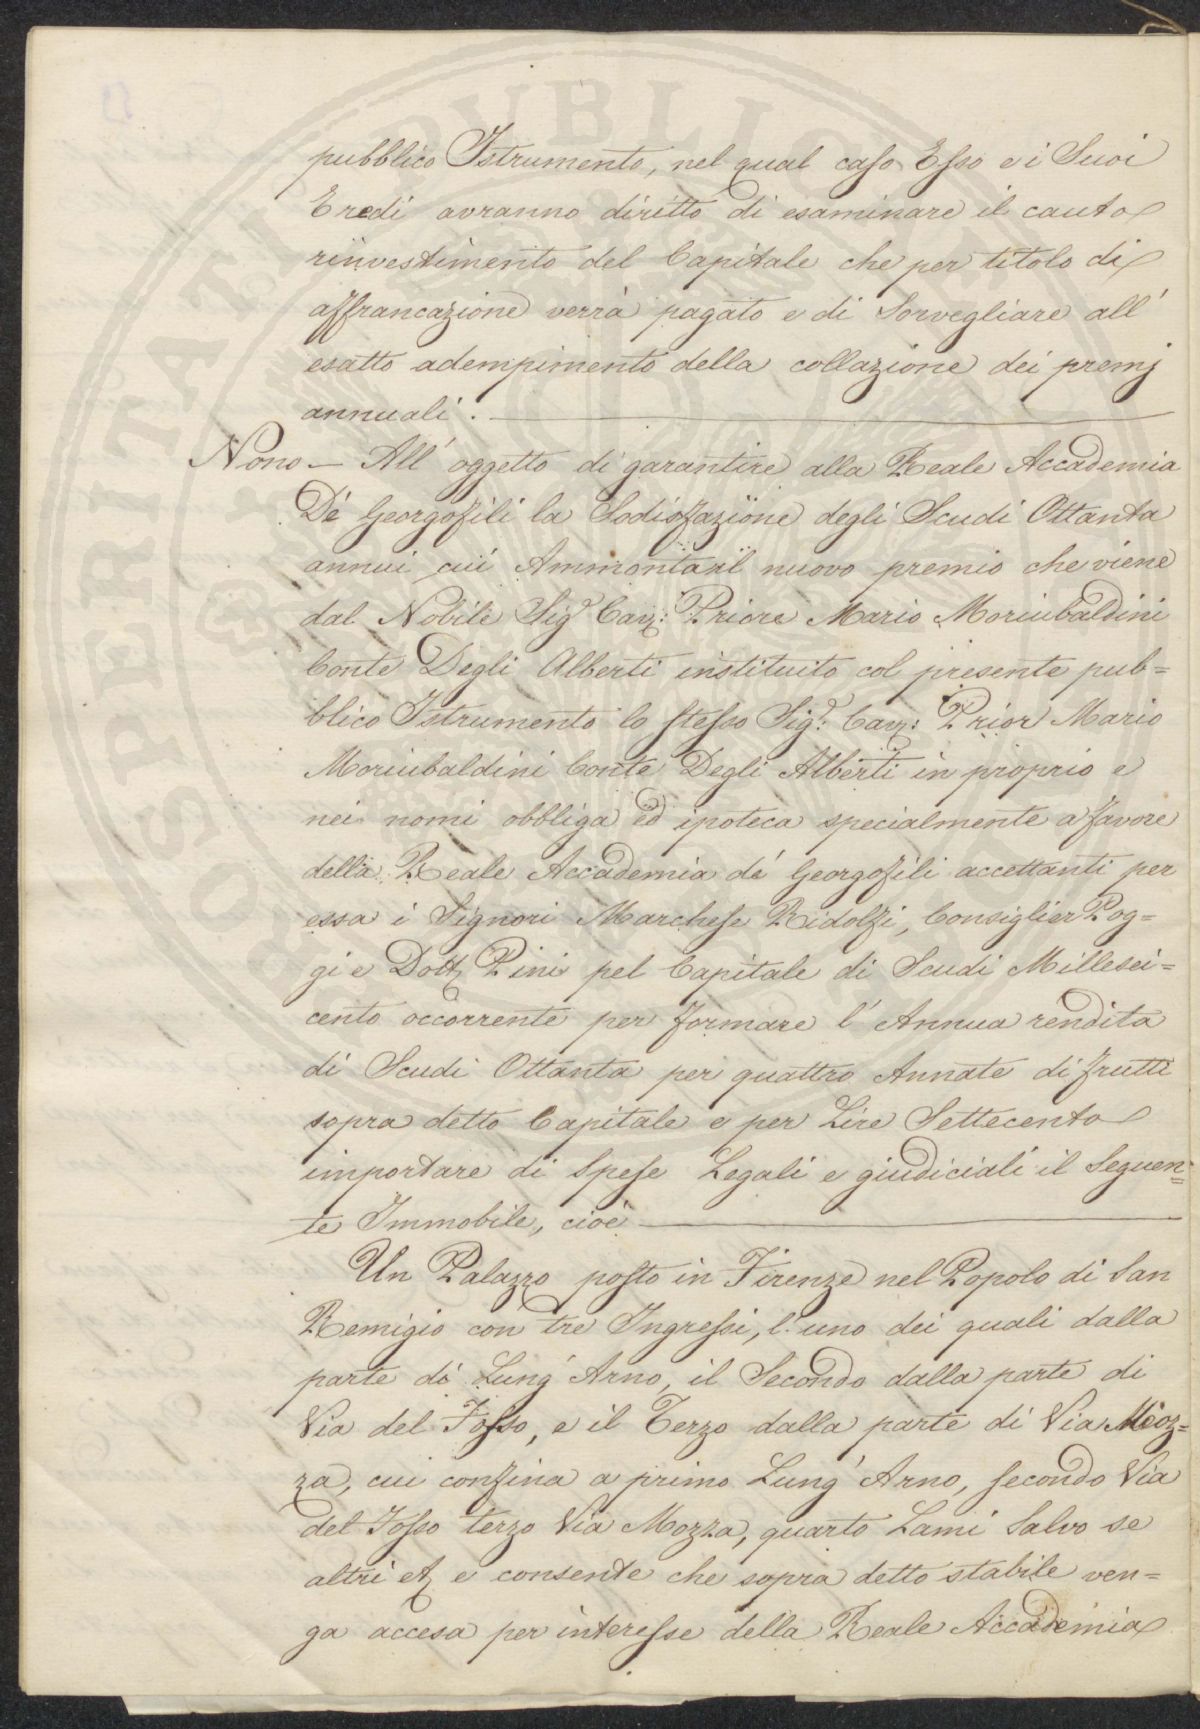 pubblico Istrumento, nel qual caso Esso e i Suoi
Eredi avranno diritto di esaminare il cauto
rinvestimento del Capitale che per titolo di
affrancazione verrà pagato e di Sorvegliare all'
esatto adempimento della collazione dei premj
annuali.
Nono — All' oggetto di garantire alla Reale Accademia
De' Georgofili la Sodisfazione degli Scudi Ottanta
annui cui Ammonta il nuovo premio che viene
dal Nobile Sig.r Cav: Priore Mario Moriubaldini
Conte Degli Alberti instituito col presente pub=
blico Istrumento lo stesso Sig.r Cav: Prior Mario
Moriubaldini Conte Degli Alberti in proprio e
nei nomi obbliga ed ipoteca specialmente a favore
della Reale Accademia de' Georgofili accettanti per
essa i Signori Marchese Ridolfi, Consiglier Pog=
gi e Dott. Pini pel Capitale di Scudi Millesei=
cento occorrente per formare l' Annua rendita
di Scudi Ottanta per quattro Annate di frutti
sopra detto Capitale e per Lire Settecento
importare di Spese Legali e giudiciali il Seguen=
te Immobile, cioè
Un Palazzo posto in Firenze nel Popolo di San
Remigio con tre Ingressi, l' uno dei quali dalla
parte di Lung' Arno, il Secondo dalla parte di
Via del Fosso, e il Terzo dalla parte di Via Moz=
za, cui confina a primo Lung' Arno, secondo Via
del Fosso terzo Via Mozza, quarto Lami Salvo se
altri et e consente che sopra detto stabile ven=
ga accesa per interesse della Reale Accademia
PROSPERITATI PUBLICAE